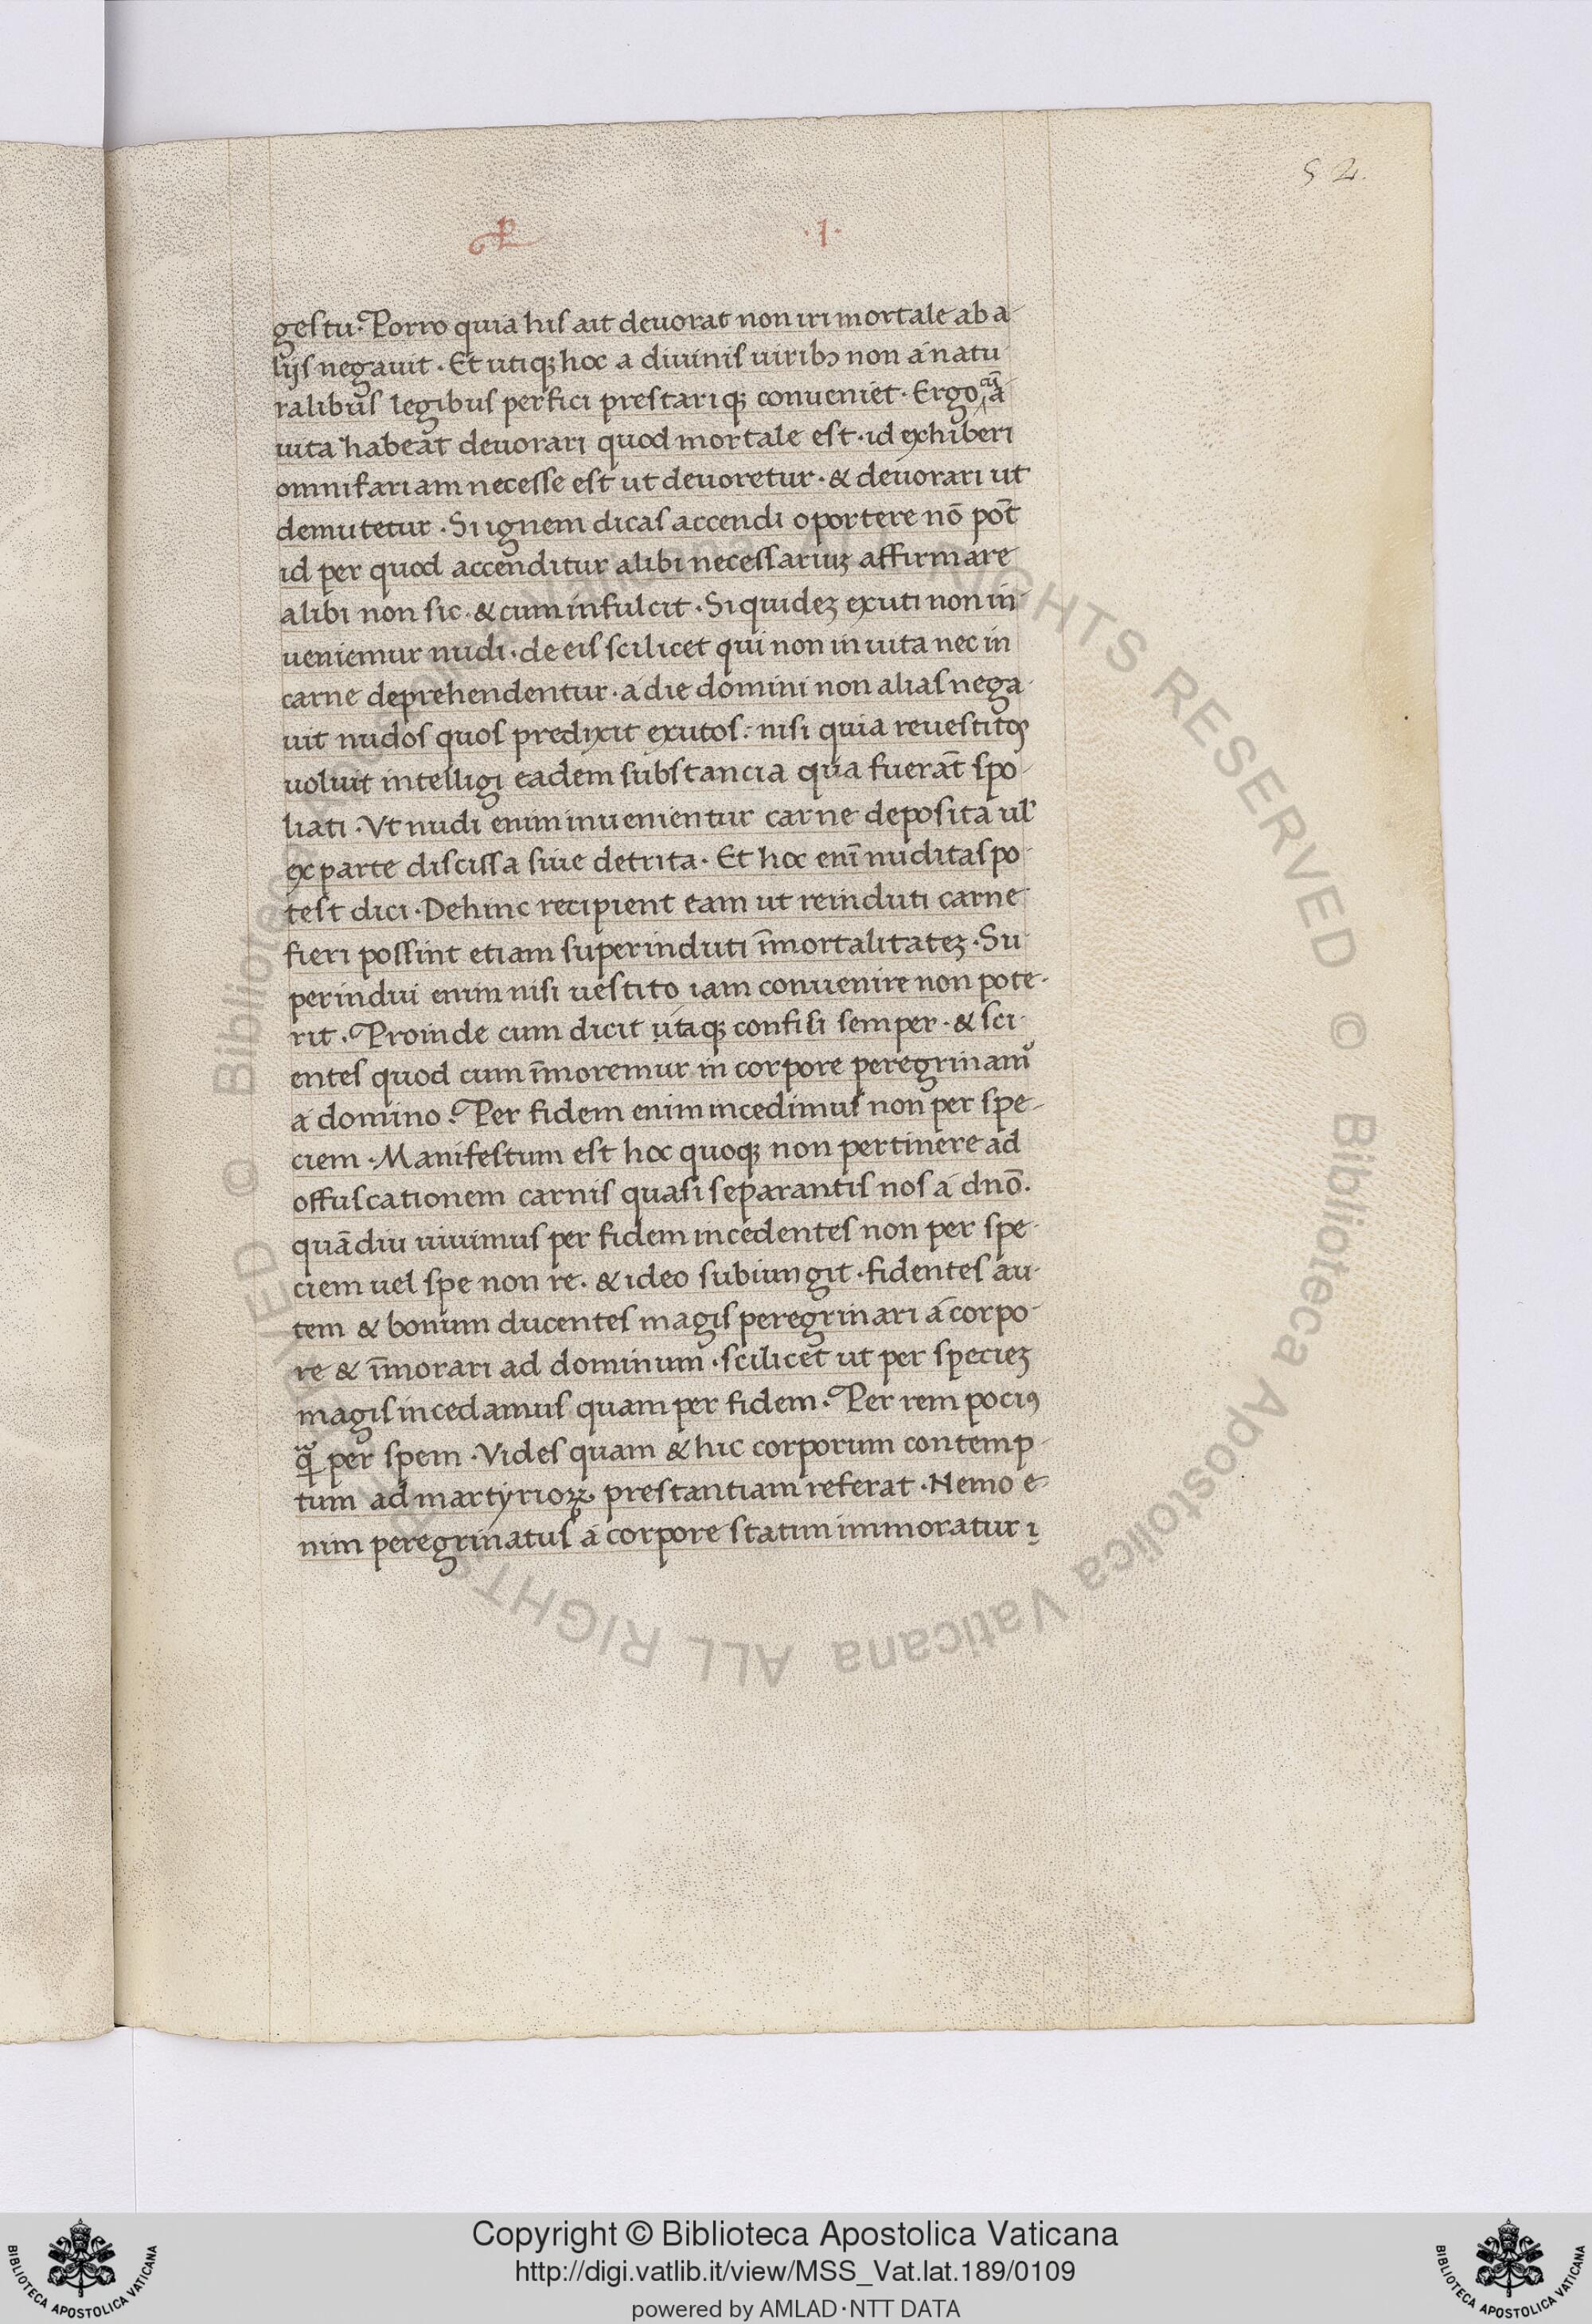 52.
P .I.
gestu. Porro quia his ait deuorat non iri mortale ab a-
lijs negauit. Et utiqꝫ hoc a diuinis uiribꝫ non a natu-
ralibus legibus perfici prestariqꝫ conueniet. Ergo cũ a
uita habeat deuorari quod mortale est. id exhiberi
omnifariam necesse est ut deuoretur. & deuorari ut
demutetur. Si ignem dicas accendi oportere nõ pot̃
id per quod accenditur alibi necessariuꝫ affirmare
alibi non sic. & cum infulcit. Siquideꝫ exuti non in-
ueniemur nudi. de eis scilicet qui non in uita nec in
carne deprehendentur. a die domini non alias nega-
uit nudos quos predixit exutos: nisi quia reuestitꝯ
uoluit intelligi eadem substancia qua fuerãt spo-
liati. Vt nudi enim inuenientur carne deposita ul'
ex parte discissa siue detrita. Et hoc enĩ nuditas po-
test dici. Dehinc recipient eam ut reinduti carne
fieri possint etiam superinduti ĩmortalitateꝫ. Su-
perindui enim nisi uestito iam conuenire non pote-
rit. Proinde cum dicit utaqꝫ confisi semper. & sci-
entes quod cum ĩmoremur in corpore peregrinamꝰ
a domino. Per fidem enim incedimus non per spe-
ciem. Manifestum est hoc quoqꝫ non pertinere ad
offuscationem carnis quasi separantis nos a dnõ.
quãdiu uiuimus per fidem incedentes non per spe-
ciem uel spe non re. & ideo subiungit. fidentes au-
tem & bonum ducentes magis peregrinari a corpo-
re & ĩmorari ad dominum. scilicet ut per specieꝫ
magis incedamus quam per fidem. Per rem pociꝰ
q̃ per spem. Vides quam & hic corporum contemp-
tum ad martyrioꝝ prestantiam referat. Nemo e-
nim peregrinatus a corpore statim immoratur ı
Copyright © Biblioteca Apostolica Vaticana
http://digi.vatlib.it/view/MSS_Vat.lat.189/0109
powered by AMLAD·NTT DATA
BIBLIOTECA APOSTOLICA VATICANA
BIBLIOTECA APOSTOLICA VATICANA
© Biblioteca Apostolica Vaticana ALL RIGHTS RESERVED © Biblioteca Apostolica Vaticana ALL RIGHTS RESERVED